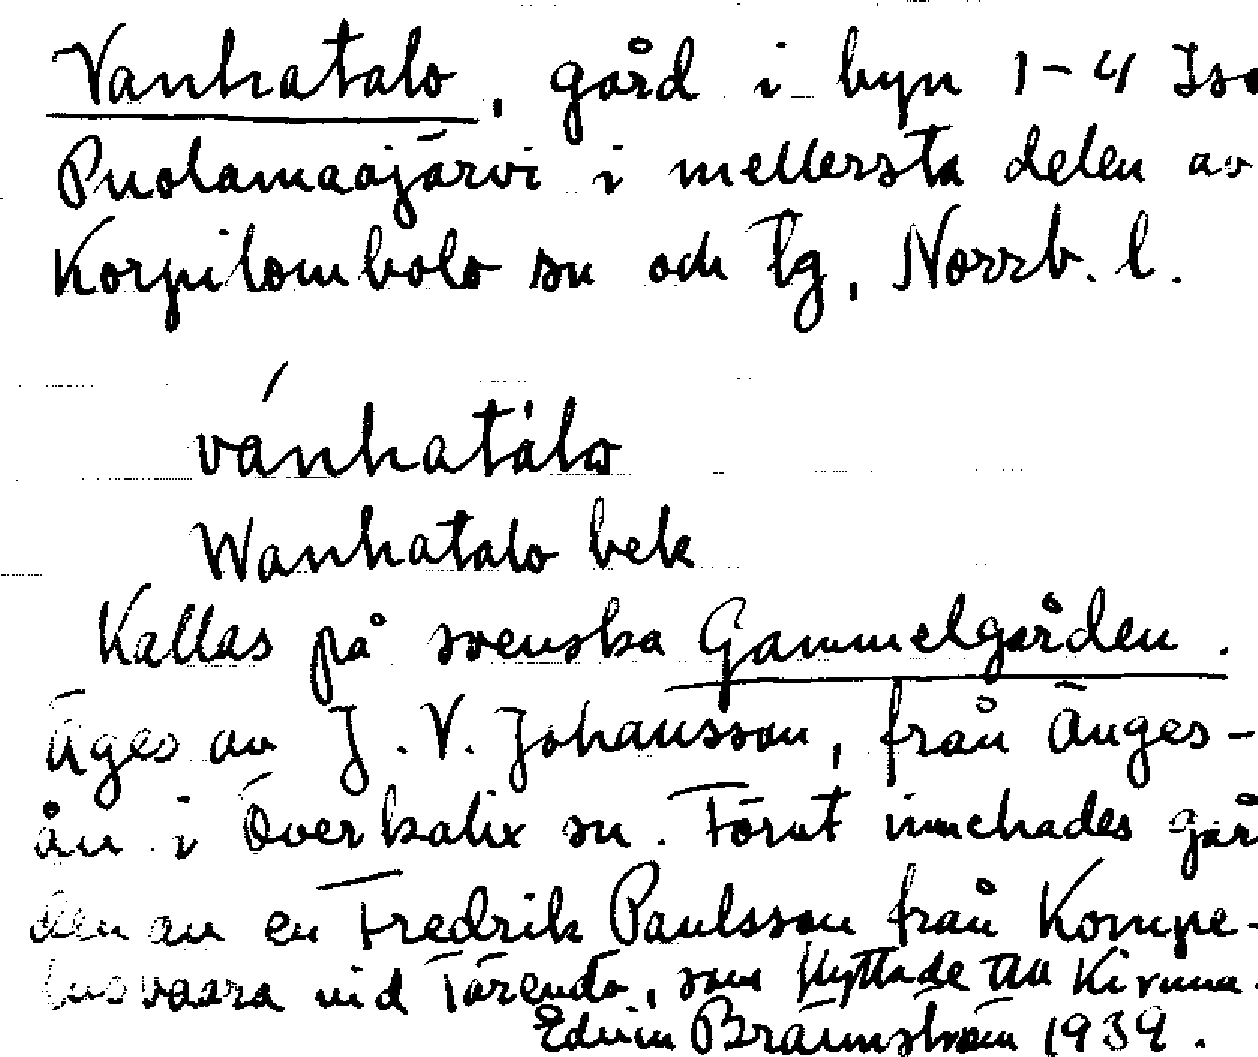 Vanhatalo, gård i byn 1-4 Iso
Puolamaajärvi i mellersta delen av
Korpilombolo sn och tg, Norrb. l.
vánhatàlo
Wanhatalo bek
Kallas på svenska Gammelgården.
Äges av J. V. Johansson, från Änges-
ån i Överkalix sn. Förut innehades går
den av en Fredrik Paulsson från Kompe-
lusvaara vid Tärendö, som flyttade till Kiruna.
Edvin Brännström 1939.